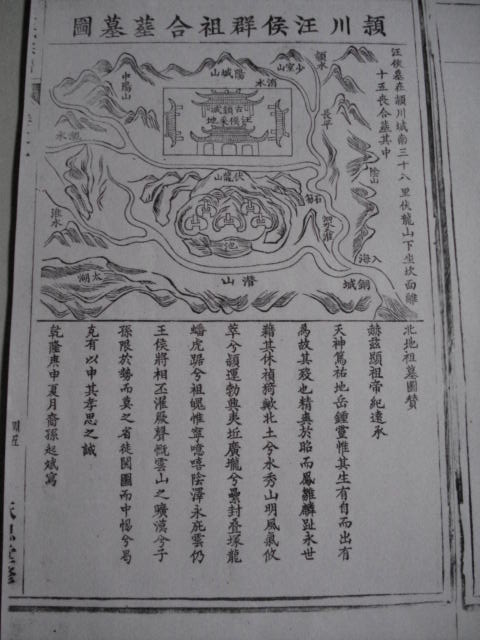 潁川汪侯群祖合塟墓圖
汪侯墓在潁川城南三十八里伏龍山下坐坎面離
十五喪合塟其中
潁水
少室山
陽城山
洧水
中陽山
古潁城
汪侯采地
長平
陰山
潩水
伏龍山
石器
池
淮水
入海
潛山
銅城
太湖
北地祖墓圖贊
赫茲顯祖帝紀遠承
天神篤祐地岳鍾靈惟其生有自而出有
為故其殁也精典於昭而鳳雛麟趾永世
藉其休禎猗歟北土兮水秀山明風氣攸
萃兮頟運勃興夷坵廣壠兮纍封叠塚龍
蟠虎踞兮祖魄惟寧噫嘻陰澤永庇雲仍
王侯將相丕濯厥聲慨雲山之曠漠兮子
孫限於勢而莫之省徒閱圖而中惕兮曷
克有以申其孝思之誠
乾隆庚申夏月裔孫起斌寫